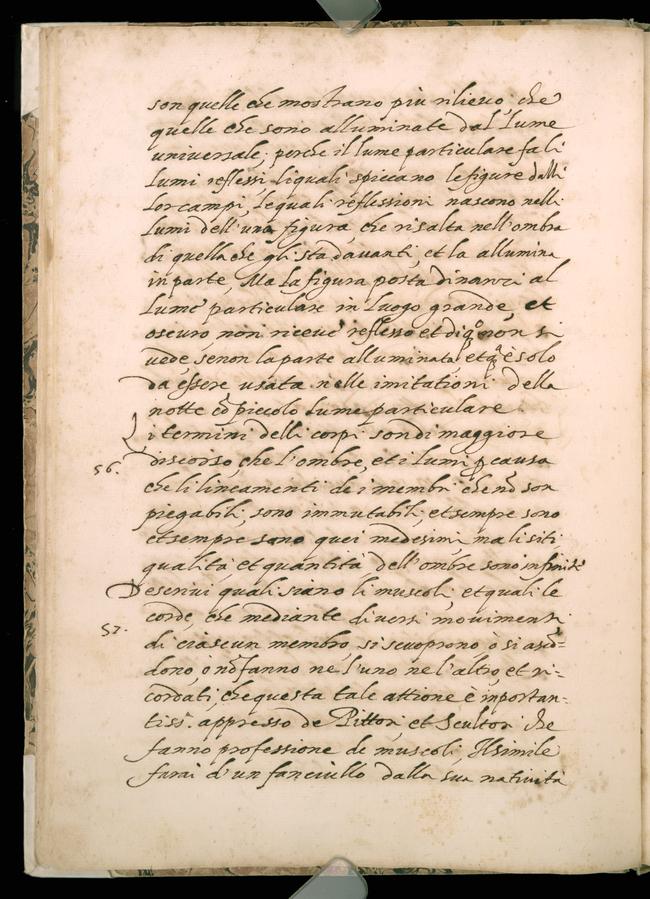 son quelle che mostrano più rilievo, che
quelle che sono alluminate dal lume
universale; perche il lume particulare fa li
lumi reflessi liquali spiccano le figure dalli
lor campi, lequali reflessioni nascono nelli
lumi dell'una figura, che risalta nell'ombra
di quella che gli sta davanti, et la allumina
in parte, Ma la figura posta dinanzi al
lume particulare in luogo grande, et
oscuro non riceve reflesso et di qsta non si
vede, senon la parte alluminata et qsta è solo
da essere usata nelle imitationi della
notte cõ piccolo lume particulare.
Li termini delli corpi son di maggiore
56. discorso, che l'ombre, et i lumi p causa
che li lineamenti de i membri che nõ son
piegabili, sono immutabili, et sempre sono
et sempre sono quei medesimi, ma li siti
qualità, et quantità dell'ombre sono infinite
Descrivi quali siano li muscoli, et quali le
corde, che mediante diversi movimenti
57. di ciascun membro, si scuoprono ò si ascõ=
dono, ò nõ fanno ne l'uno ne l'altro, et ri=
cordati, che questa tale attione è importan=
tiss. appresso de Pittori et Scultori che
fanno professione de muscoli, Il simile
farai d'un fanciullo dalla sua natività